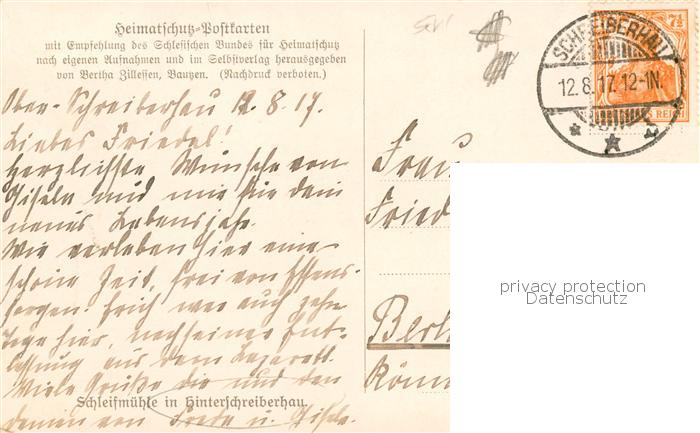 Heimatschutz-Postkarten
mit Empfehlung des Schlesischen Bundes für Heimatschutz
nach eigenen Aufnahmen und im Selbstverlag herausgegeben
von Bertha Zillessen, Bautzen. (Nachdruck verboten.)
Ober-Schreiberhau 12.8.17.
Liebes Friedel!
Herzlichste Wünsche von
Gisela und mir für dein
neues Lebensjahr.
Wir verleben hier eine
schöne Zeit, frei von Essens-
sorgen. Erich war auch zehn
Tage hier, nach seiner Ent-
lassung aus dem Lazarett.
Viele Grüße dir und den
Schleifmühle in Hinterschreiberhau.
deinen von Frieda u. Gisela.
SCHREIBERHAU
12.8.17.12-1N.
7½
S REICH
Frau
Fried
Berl
privacy protection
Datenschutz